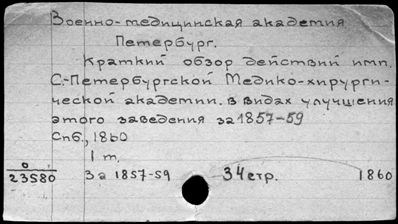 Военно-медицинская академия
Петербург.
Краткий обзор действий имп.
С.-Петербургской Медико-хирурги-
ческой академии. в видах улучшения
этого заведения за 1857-59
Спб., 1860
1 т.
о
23580 За 1857-59 34 стр. 1860